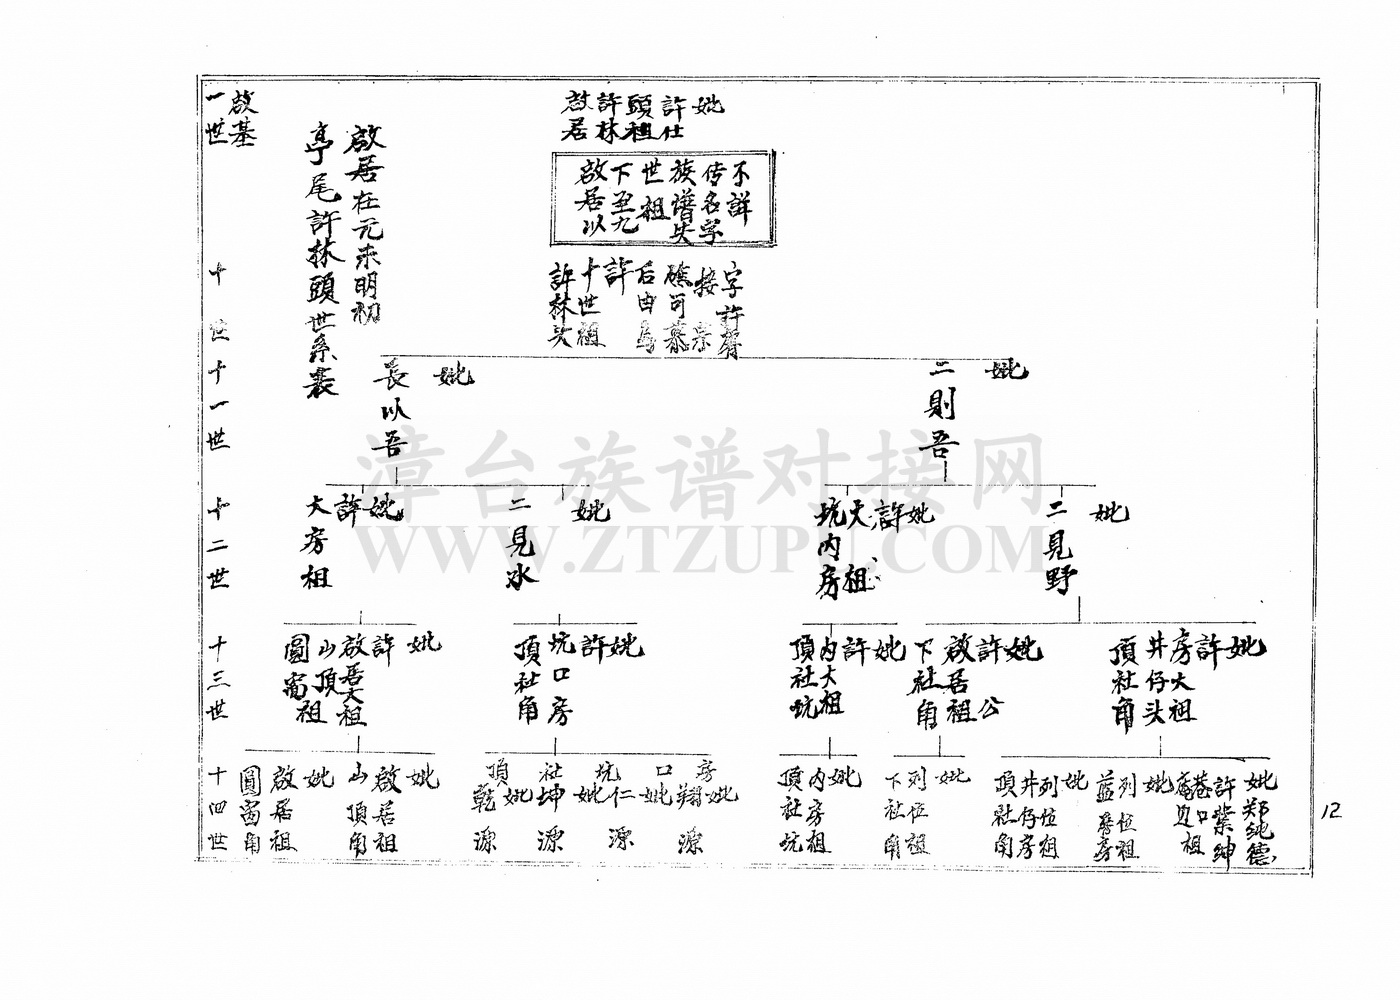 啟基
一世
十世
十一世
十二世
十三世
十四世
啟居在元末明初
亭尾許林頭世系表
啟居
許林
頭祖
許仕
妣
啟居以
下至九
世祖
族譜失
传名字
不詳
許林头
十世祖
許
后由
字許
長以吾
妣
二則吾
妣
大房祖
許
妣
二見水
妣
坑内房
大祖
許
妣
二見野
妣
圓窗
山頂祖
啟居大祖
許
妣
頂社角
坑口房
許
妣
頂社坑
内大祖
許
妣
下社角
啟居祖
許公
妣
頂社角
井仔头
房大祖
許
妣
圓窗角
啟居祖
妣
山頂角
啟居祖
妣
頂社坑口房
乾源
妣
坤源
妣
仁源
妣
翔源
妣
頂社坑
内房祖
妣
下社角
列位祖
妣
頂社角
井仔房
列位祖
妣
列位祖
妣
巷口祖
許紫紳
妣郑純德
12
漳台族谱对接网
WWW.ZTZUPU.COM